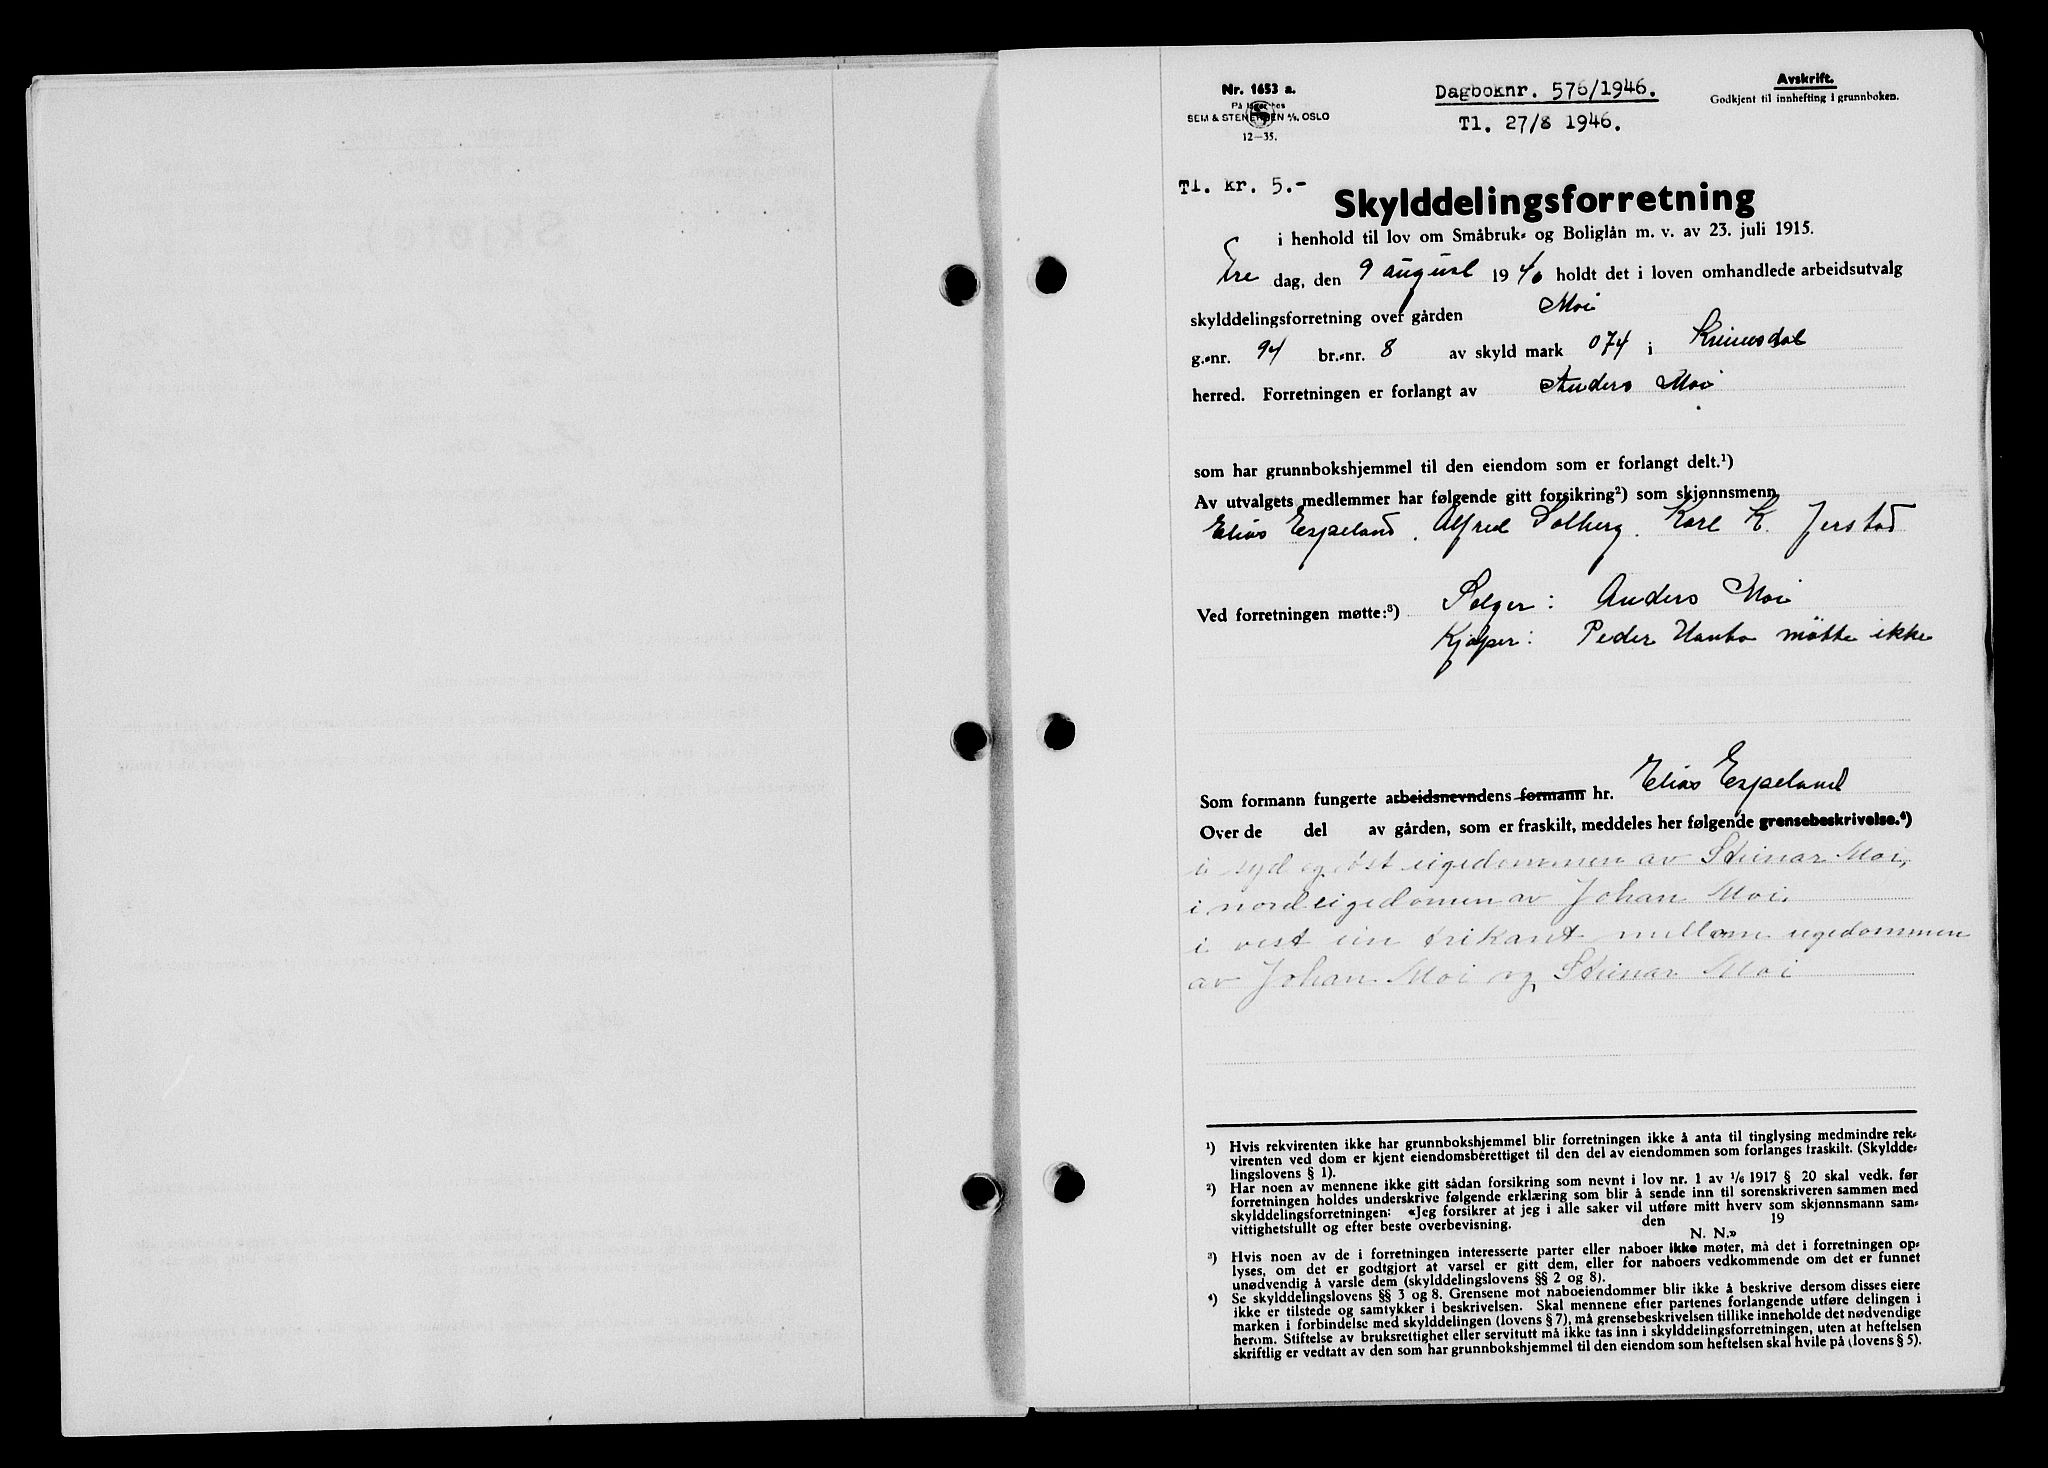 Nr. 1653 a.
På lager hos
SEM & STENERSEN A/S, OSLO
12—35.
Dagboknr. 576/1946.
Tl. 27/8 1946.
Avskrift.
Godkjent til innhefting i grunnboken.
Tl. kr. 5.-
Skylddelingsforretning
i henhold til lov om Småbruk- og Boliglån m. v. av 23. juli 1915.
Fre dag, den 9 august 1946 holdt det i loven omhandlede arbeidsutvalg
skylddelingsforretning over gården Moi
g.-nr. 94 br.-nr. 8 av skyld mark 074 i Kvinesdal
herred. Forretningen er forlangt av Anders Moi
som har grunnbokshjemmel til den eiendom som er forlangt delt.¹)
Av utvalgets medlemmer har følgende gitt forsikring²) som skjønnsmenn
Elias Espeland, Alfred Solberg. Karl K. Jerstad
Ved forretningen møtte:³) Selger: Anders Moi
Kjøper: Peder møtte ikke
Som formann fungerte arbeidsnevndens formann hr. Elias Espeland
Over de del av gården, som er fraskilt, meddeles her følgende grensebeskrivelse.⁴)
i syd og øst eigedommen av Steinar Moi,
i nord eigedomen av Johan Moi.
i vest ein trikant mellom eigedommen
av Johan Moi og Steinar Moi
¹) Hvis rekvirenten ikke har grunnbokshjemmel blir forretningen ikke å anta til tinglysing medmindre rek-
virenten ved dom er kjent eiendomsberettiget til den del av eiendommen som forlanges fraskilt. (Skyldde-
lingslovens § 1).
²) Har noen av mennene ikke gitt sådan forsikring som nevnt i lov nr. 1 av 1/6 1917 § 20 skal vedk. før
forretningen holdes underskrive følgende erklæring som blir å sende inn til sorenskriveren sammen med
skylddelingsforretningen: «Jeg forsikrer at jeg i alle saker vil utføre mitt hverv som skjønnsmann sam-
vittighetsfullt og efter beste overbevisning. den 19
N. N.»
³) Hvis noen av de i forretningen interesserte parter eller naboer ikke møter, må det i forretningen op-
lyses, om det er godtgjort at varsel er gitt dem, eller for naboers vedkommende om det er funnet
unødvendig å varsle dem (skylddelingslovens §§ 2 og 8).
⁴) Se skylddelingslovens §§ 3 og 8. Grensene mot naboeiendommer blir ikke å beskrive dersom disses eiere
ikke er tilstede og samtykker i beskrivelsen. Skal mennene efter partenes forlangende utføre delingen i
marken i forbindelse med skylddelingen (lovens § 7), må grensebeskrivelsen tillike inneholde det nødvendige
herom. Stiftelse av bruksrettighet eller servitutt må ikke tas inn i skylddelingsforretningen, uten at heftelsen
skriftlig er vedtatt av den som har grunnbokshjemmel til den eiendom som heftelsen skal hvile på (lovens § 5).